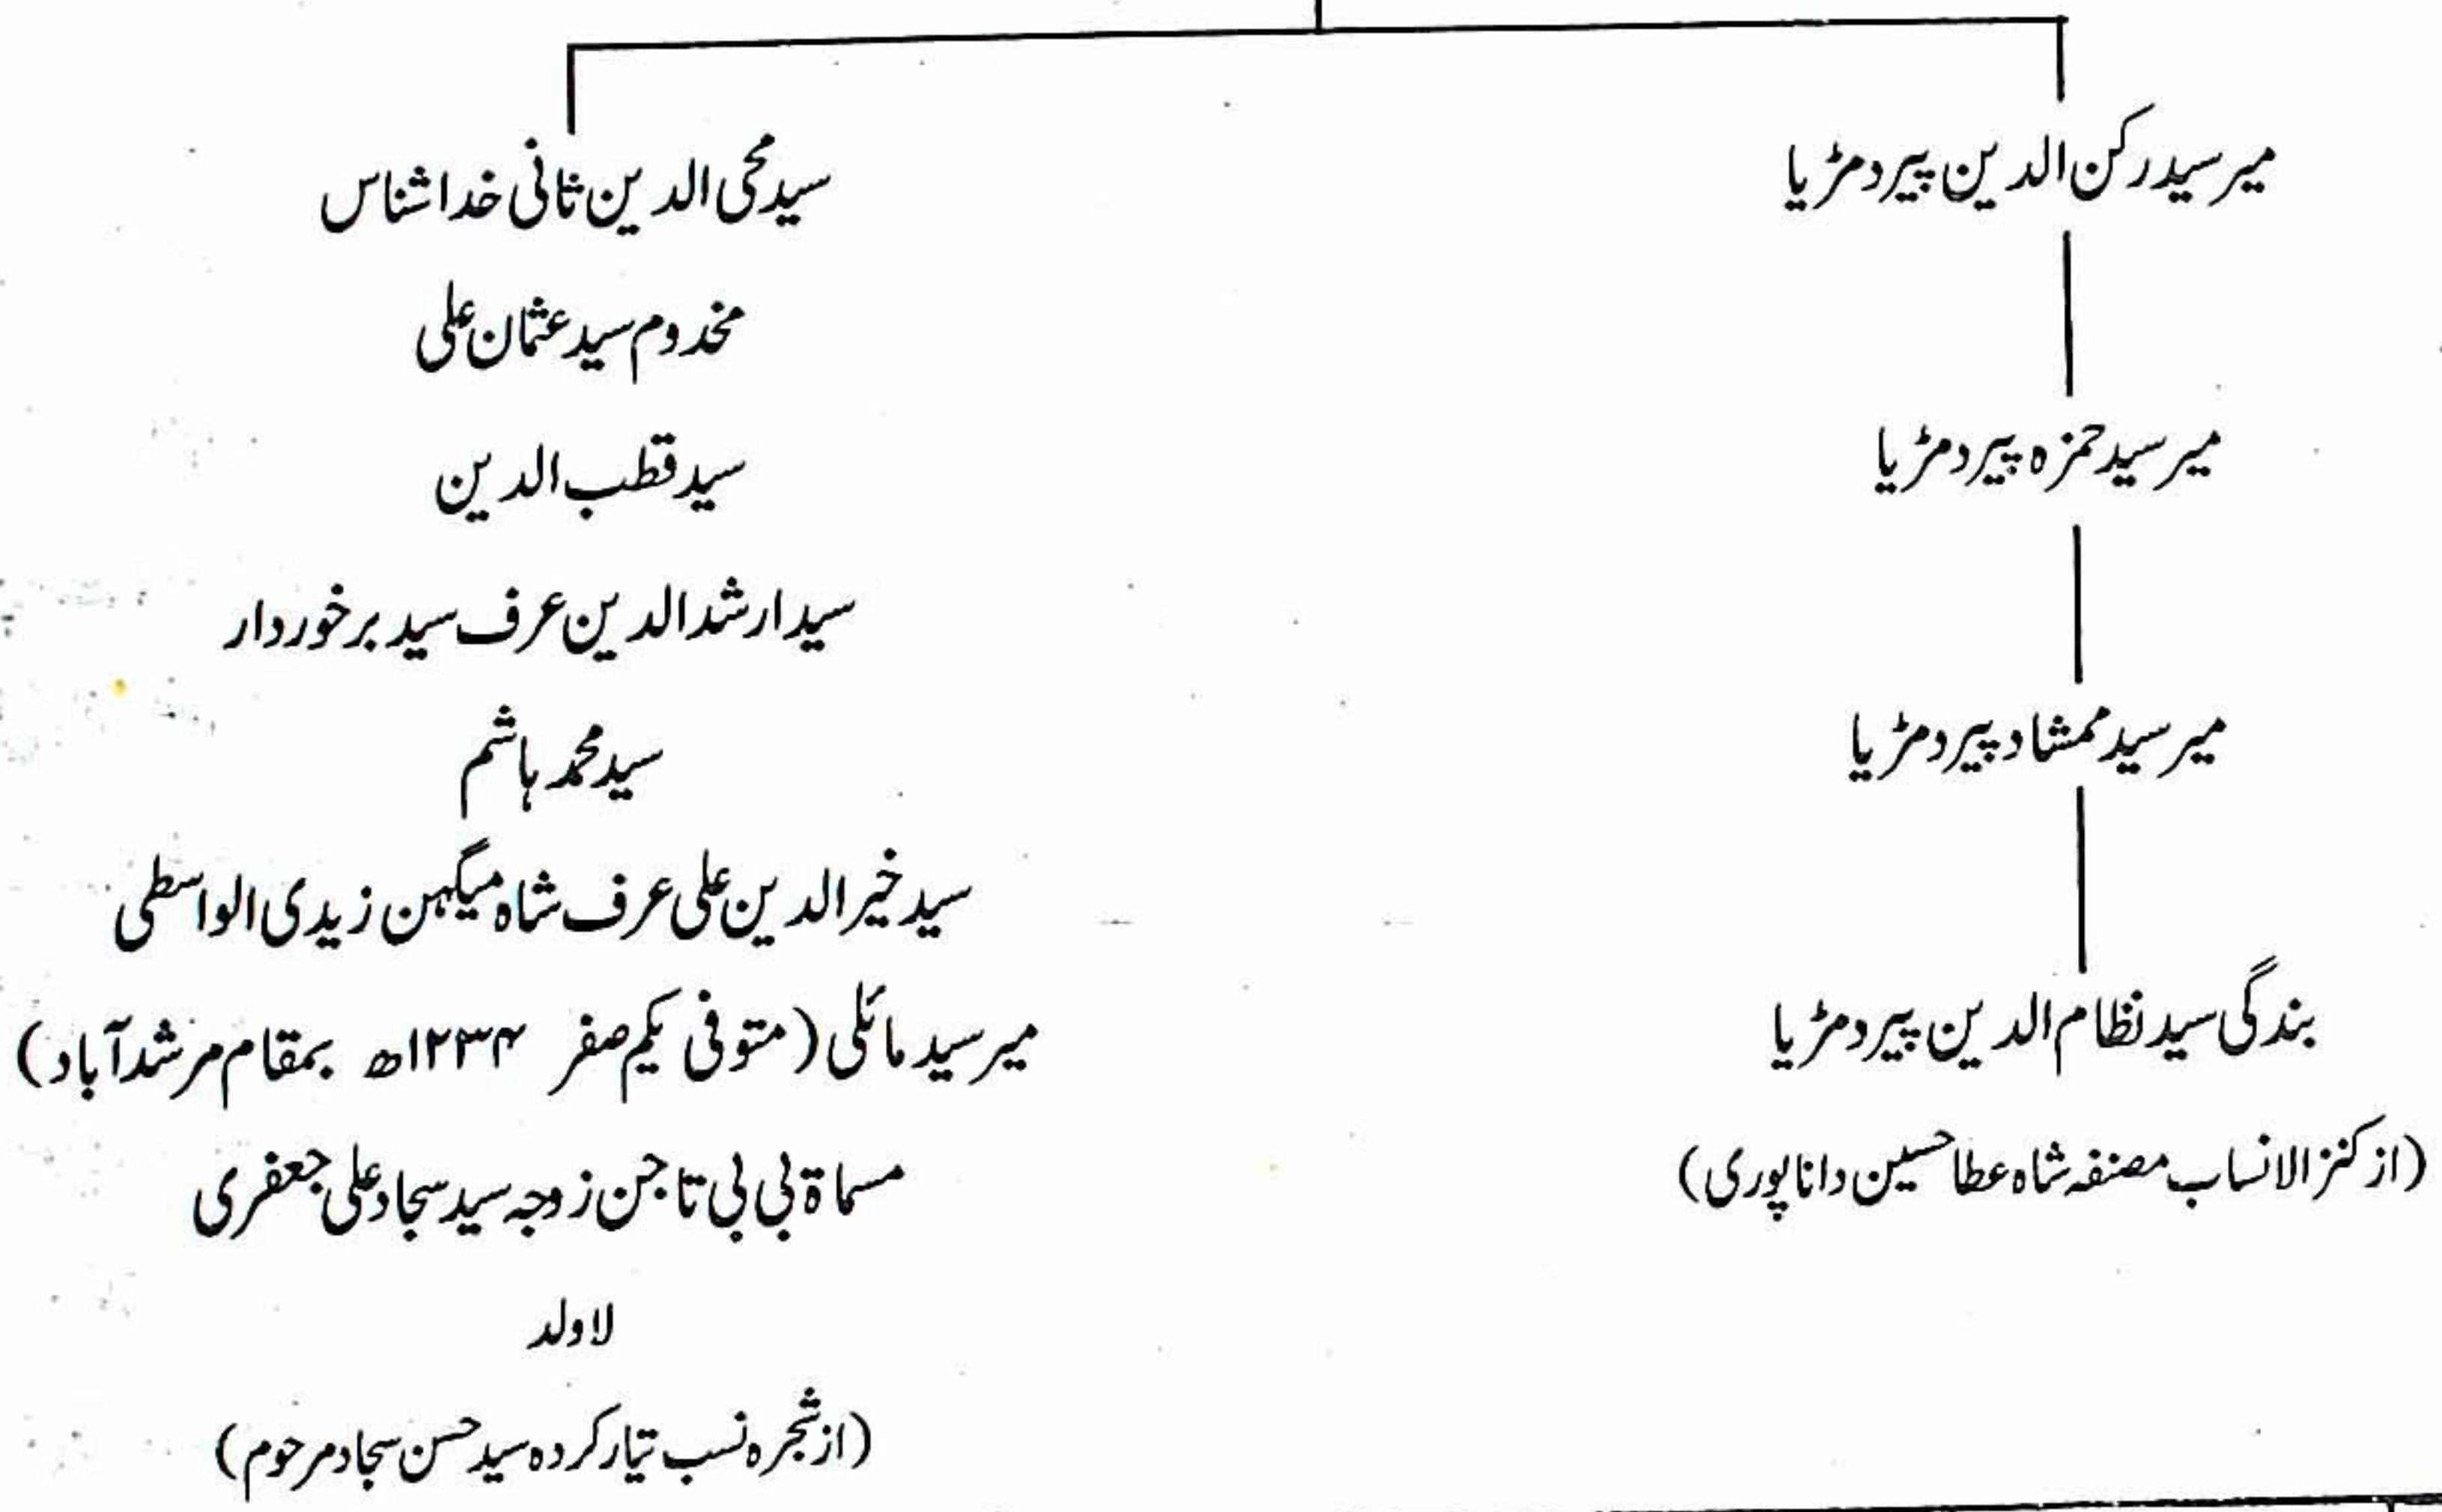 میر سید رکن الدین پیر دمڑیا
میر سید حمزہ پیر دمڑیا
میر سید ممشاد پیر دمڑیا
بندگی سید نظام الدین پیر دمڑیا
(از کنز الانساب مصنفہ شاہ عطا حسین داناپوری)
سید محی الدین ثانی خدا شناس
مخدوم سید عثمان علی
سید قطب الدین
سید ارشد الدین عرف سید برخوردار
سید محمد ہاشم
سید خیر الدین علی عرف شاہ میگہن زیدی الواسطی
میر سید مائلی (متوفی یکم صفر ۱۲۳۴ھ بمقام مرشد آباد)
مسماۃ بی بی تاجن زوجہ سید سجاد علی جعفری
لاولد
(از شجرہ نسب تیار کردہ سید حسن سجاد مرحوم)